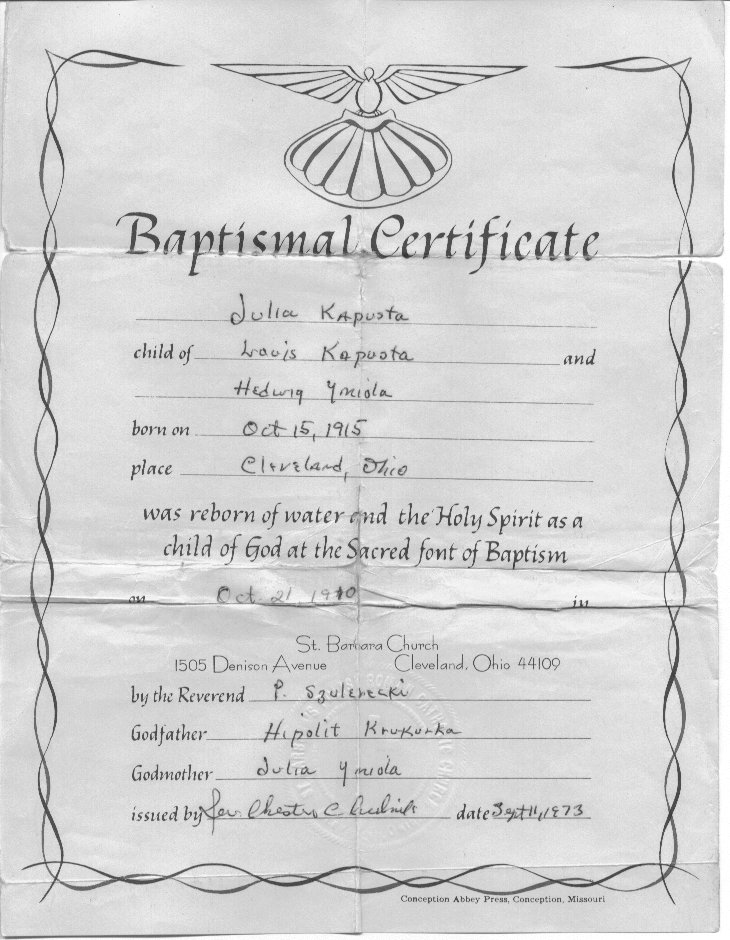 Baptismal Certificate
Julia Kapusta
child of Louis Kapusta and
Hedwig Ymiola
born on Oct 15, 1915
place Cleveland, Ohio
was reborn of water and the Holy Spirit as a
child of God at the Sacred font of Baptism
on Oct. 21, 1910 in
St. Barbara Church
1505 Denison Avenue Cleveland, Ohio 44109
by the Reverend P. Szulerecki
Godfather Hipolit Krukurka
Godmother Julia Ymiola
issued by Rev. Chester C. date Sept 11, 1973
Conception Abbey Press, Conception, Missouri